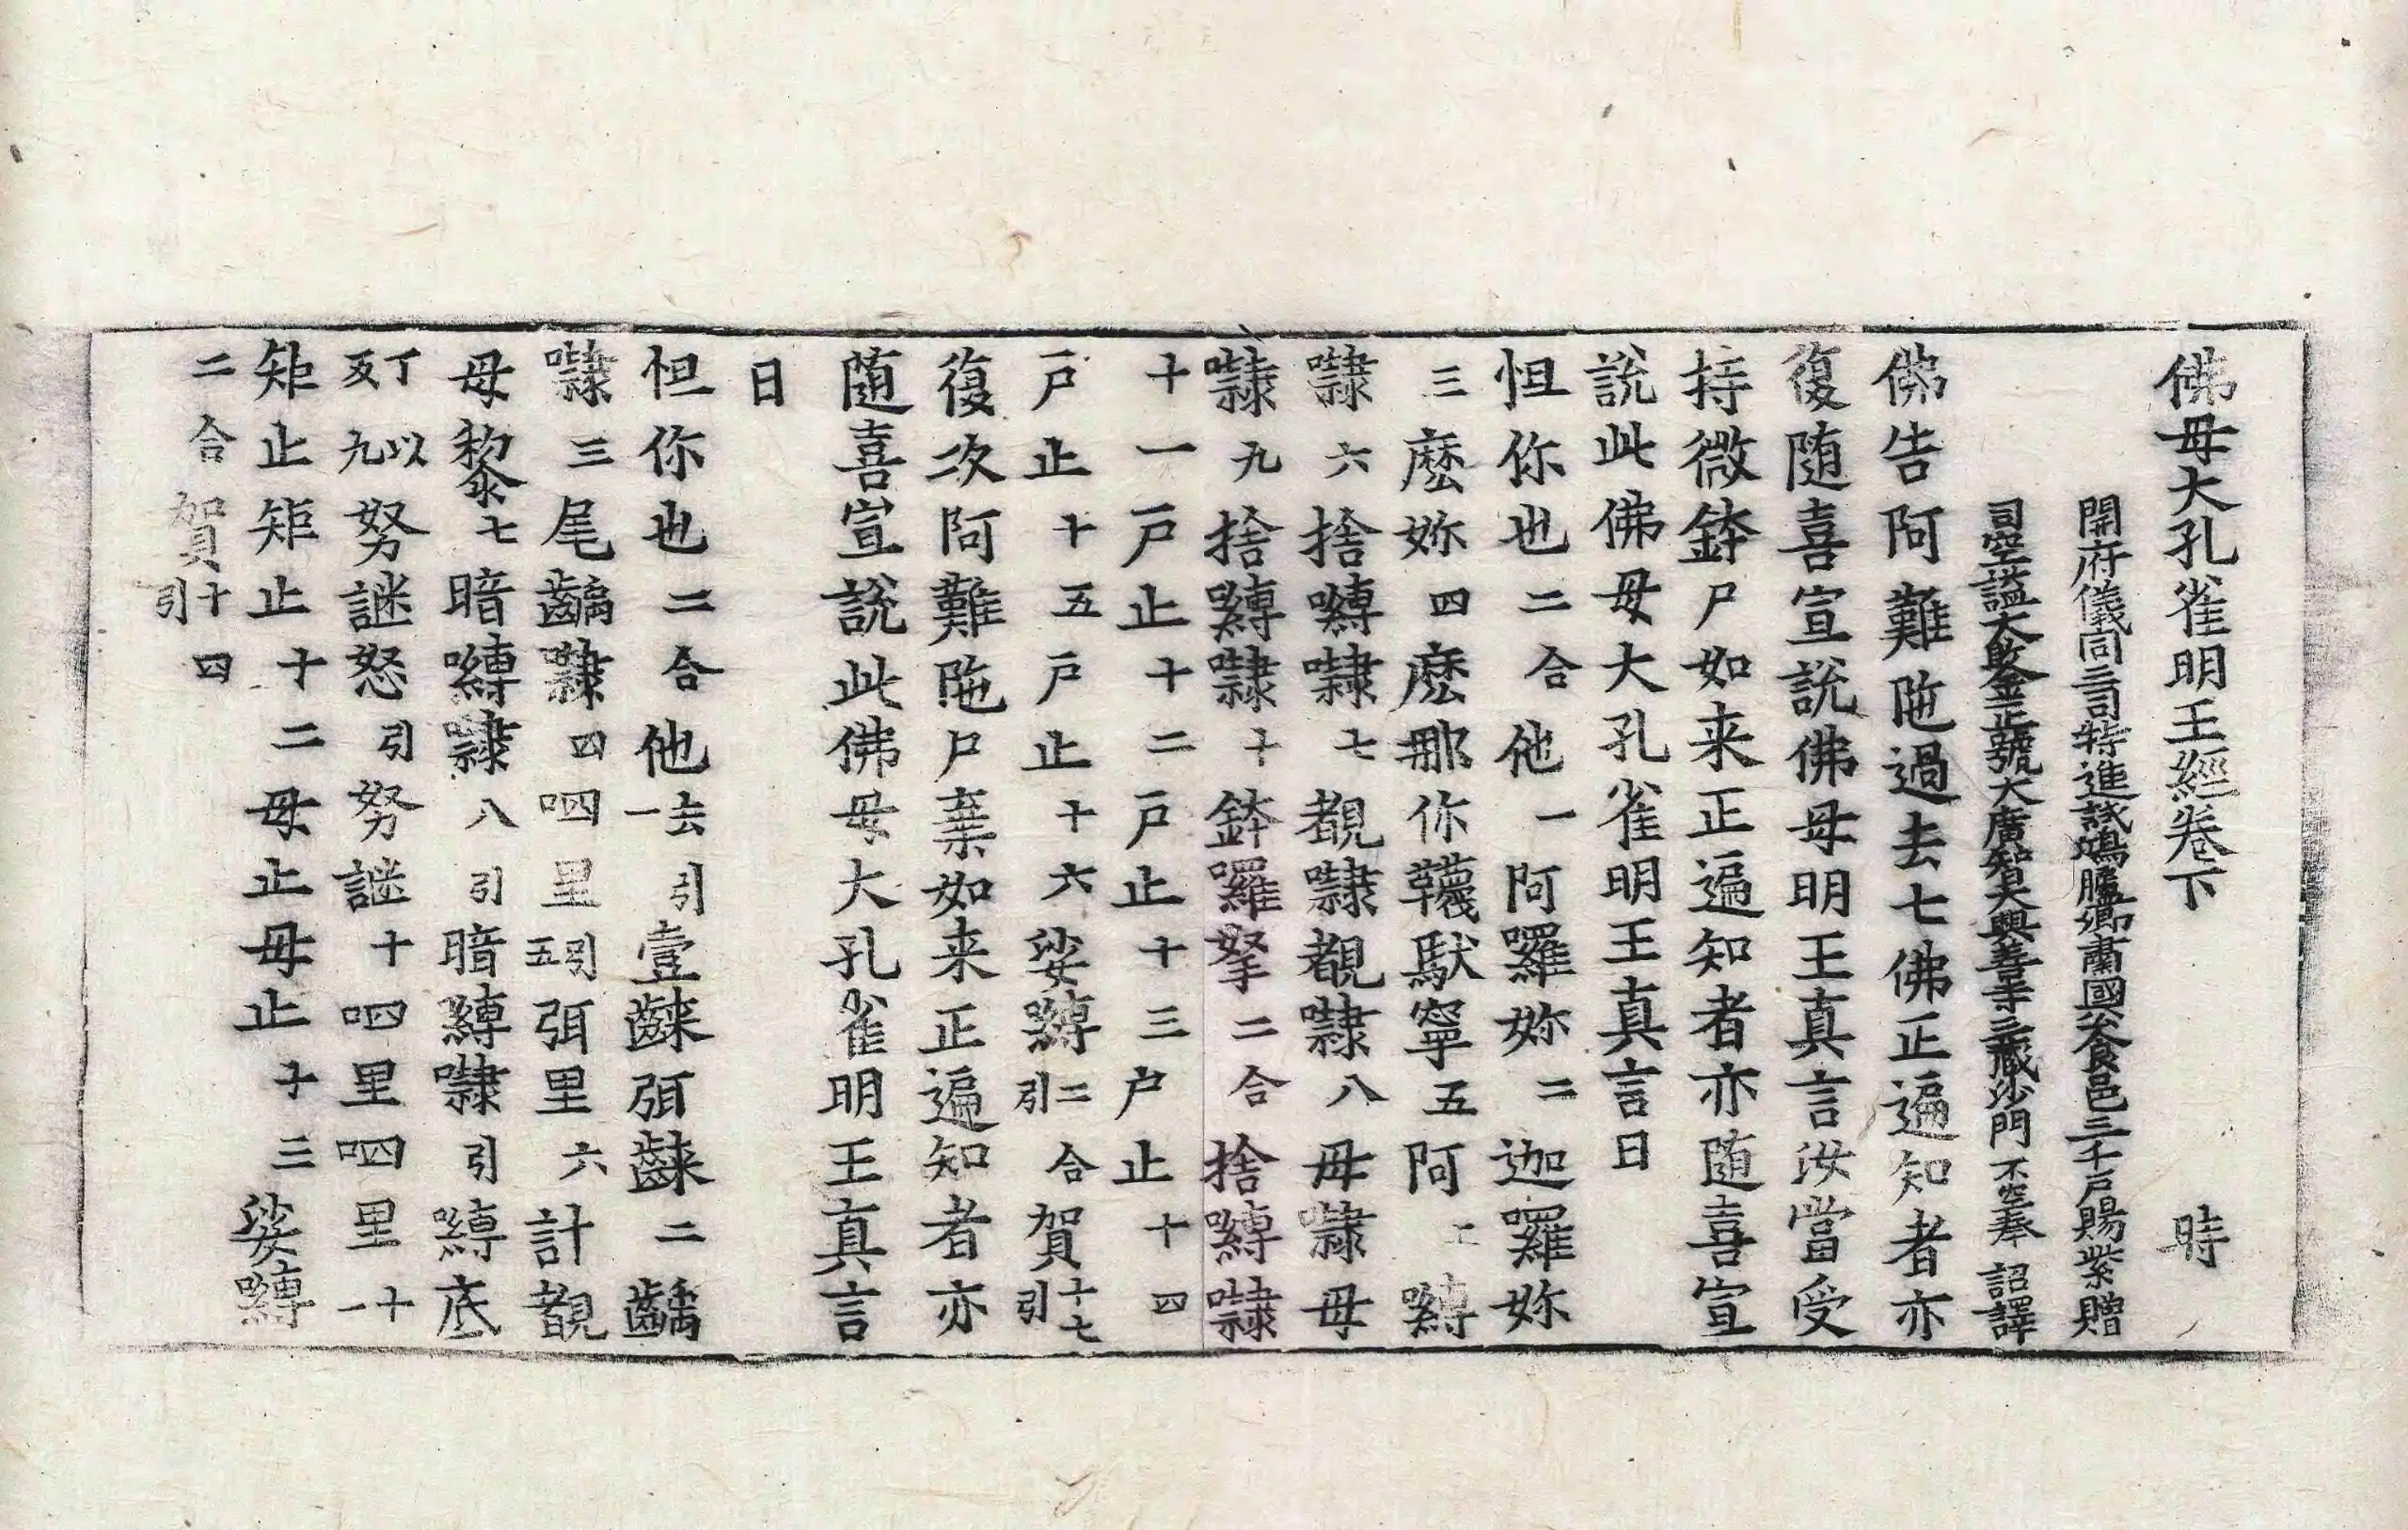 佛母大孔雀明王經卷下 時
開府儀同三司特進試鴻臚卿肅國公食邑三千戶賜紫贈
司空謚大敢金正號大廣智大興善寺三藏沙門不空奉 詔譯
佛告阿難陁過去七佛正遍知者亦
復随喜宣說佛母明王真言汝當受
持微鉢尸如来正遍知者亦随喜宣
說此佛母大孔雀明王真言曰
怛你也二合他一阿囉妳二迦囉妳
三麽妳四麽那你韈馱寧五阿上嚩
㘑六捨嚩㘑七覩㘑覩㘑八母㘑母
㘑九捨嚩㘑十鉢囉拏二合捨嚩㘑
十一戶止十二戶止十三戶止十四
戶止十五戶止十六娑嚩二合引賀十七引
復次阿難陁尸棄如来正遍知者亦
随喜宣說此佛母大孔雀明王真言
曰
怛你也二合他去引一壹𪘨弭𪘨二齲
㘑三尾齲㘑四呬里引五弭里六計覩
母黎七暗嚩㘑八引暗嚩㘑引嚩底
丁以反九努謎怒引努謎十呬里呬里十一
矩止矩止十二母止母止十三娑嚩
二合賀十四引